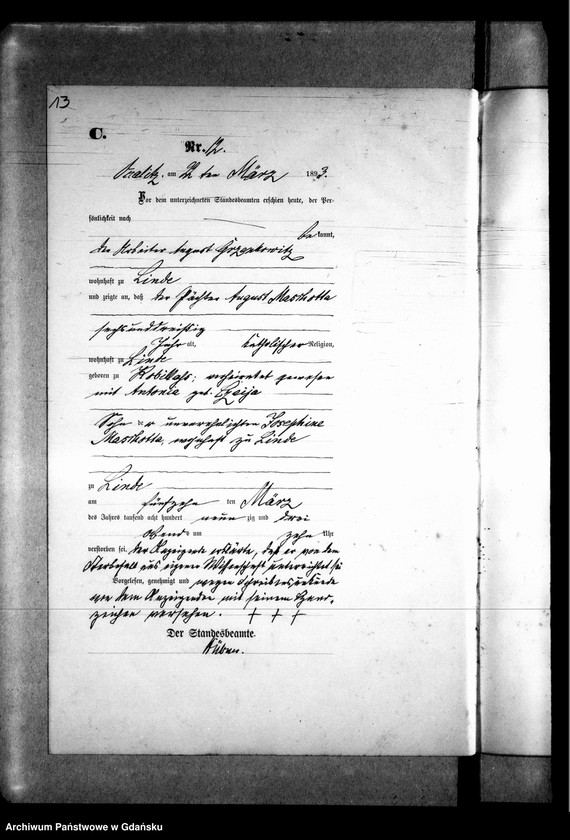 13
C.
Nr. 12.
am 22 ten März 1893.
Vor dem unterzeichneten Standesbeamten erschien heute, der Per-
sönlichkeit nach
be kannt,
der Arbeiter August
wohnhaft zu Linde
und zeigte an, daß der Pächter August Maschotta
sechsunddreißig
Jahr alt, katholischer Religion,
wohnhaft zu Linde
geboren zu verheirathet gewesen
mit Antonie geb.
Sohn der unverehelichten Josephine
Maschotta, wohnhaft zu Linde
zu Linde
am fünfzehn ten März
des Jahres tausend acht hundert neun zig und drei
um zehn Uhr
verstorben sei. Der Anzeigende erklärte, daß er von dem
Sterbefall aus eigener Wissenschaft unterrichtet sei
Vorgelesen, genehmigt und wegen Schreibensunkunde
von dem Anzeigenden mit seinem Hand-
zeichen versehen. + + +
Der Standesbeamte.
Archiwum Państwowe w Gdańsku